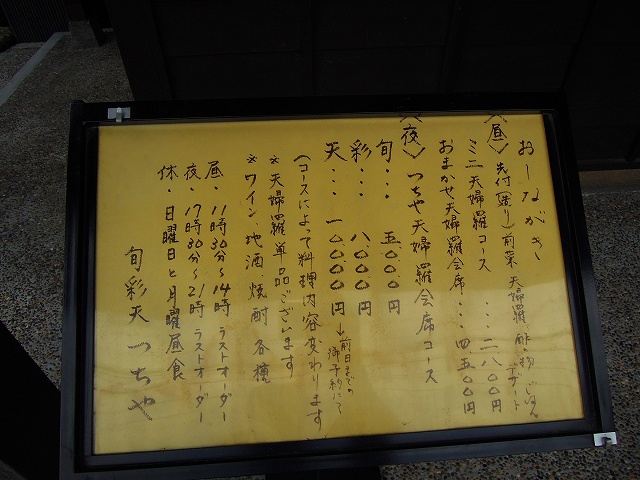 おしながき
〈昼〉先付(造り)前菜 天婦羅、酢の物、ごはん、デザート
ミニ天婦羅コース ・・・二八〇〇円
おまかせ天婦羅会席・・・四、五〇〇円
〈夜〉つちや天婦羅会席コース
旬・・・ 五、〇〇〇円
彩・・・ 八、〇〇〇円
天・・・ 一〇、〇〇〇円→前日までの御予約にて
(コースによって料理内容変わります)
※天婦羅単品ございます
※ワイン、地酒、焼酎各種
昼・11時30分〜14時 ラストオーダー
夜・17時30分〜21時 ラストオーダー
休・日曜日と月曜昼食
旬彩天 つちや